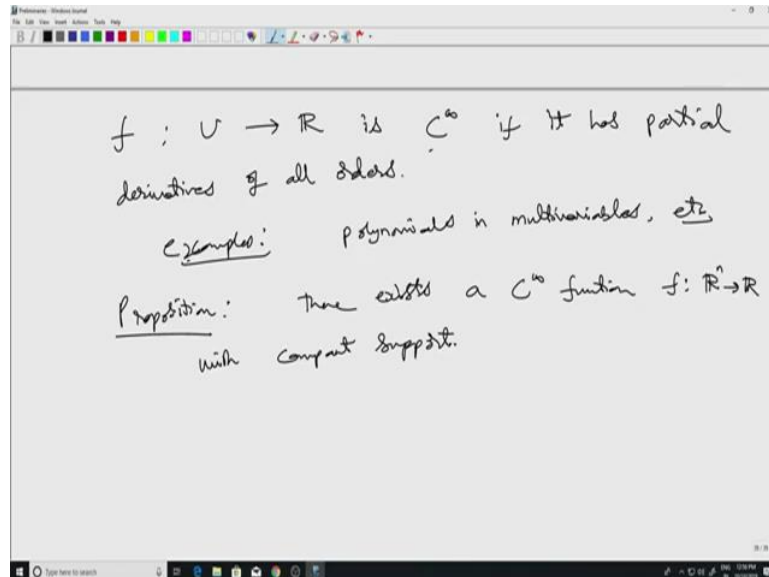 Preliminaries - Windows Journal
File Edit View Insert Actions Tools Help
f : U → ℝ is C^∞ if it has partial
derivatives of all orders.
Examples: polynomials in multivariables, etc
Proposition: there exists a C^∞ function f: ℝ^n → ℝ
with compact support.
Type here to search